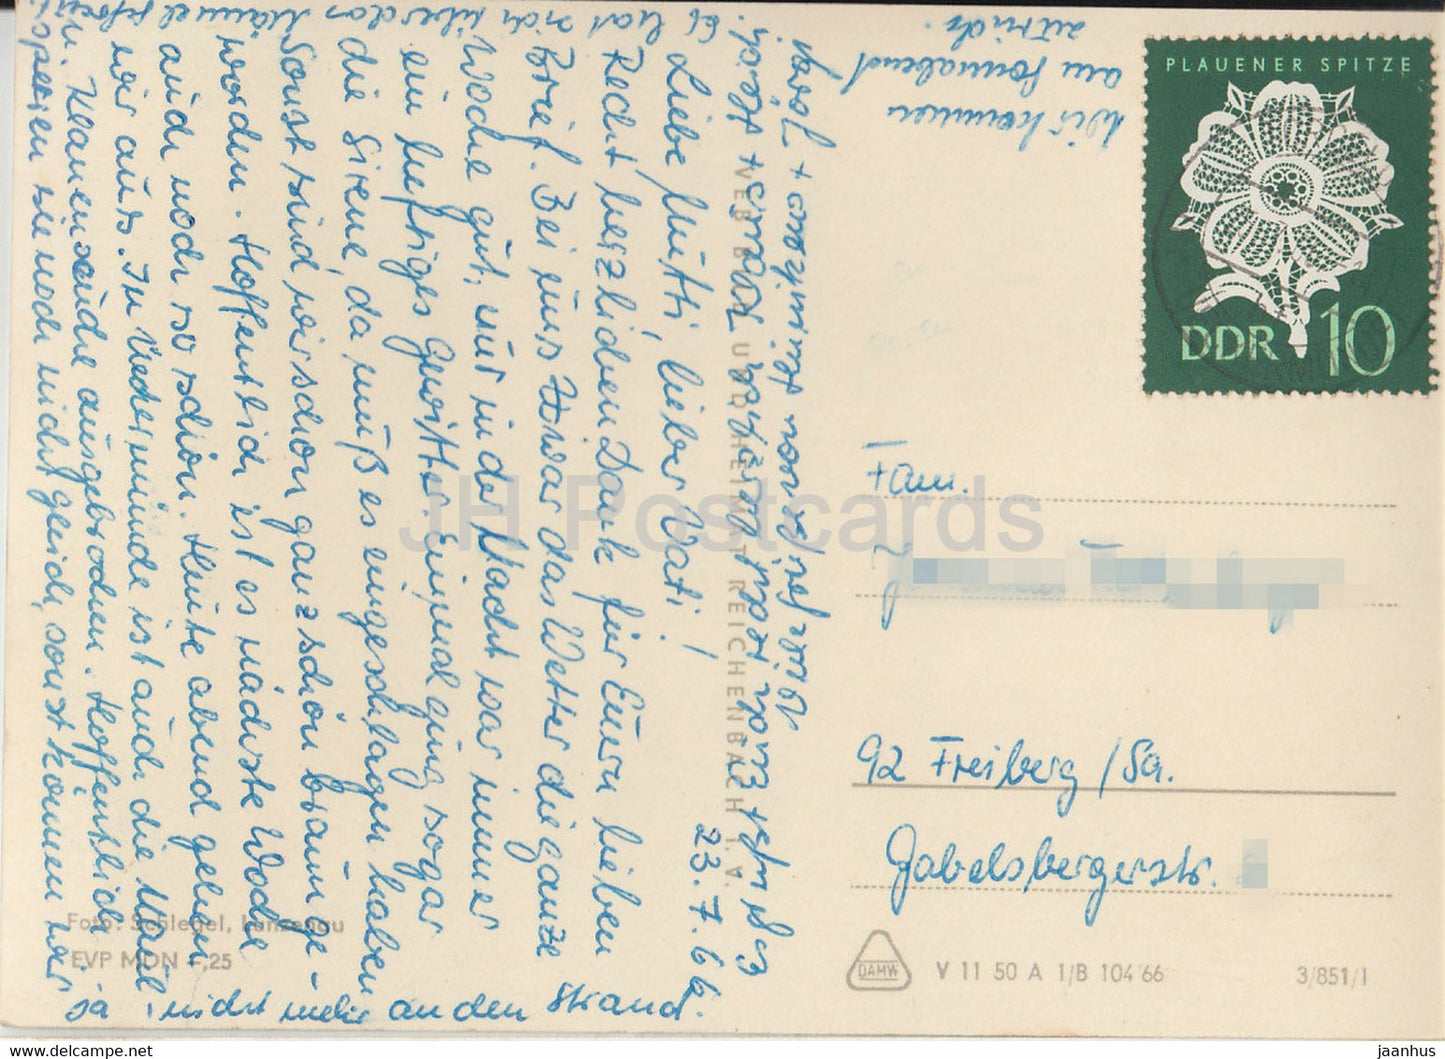 23.7.66
Liebe Mutti, lieber Vati!
Recht herzlichen Dank für Euern lieben
Brief. Bei uns war das Wetter die ganze
Woche gut, nur in der Nacht war immer
ein heftiges Gewitter. Einmal ging sogar
die Sirene, da muß es eingeschlagen haben
Sonst sind wir schon ganz schön braun ge-
worden. Hoffentlich ist es nächste Woche
auch noch so schön. Heute abend gehen
wir aus. In Uedermünde ist auch die Maul-
u. Klauenseuche ausgebrochen. Hoffentlich
sperren sie noch nicht gleich, sonst können wir
ja nicht mehr an den Strand.
Es hat sich über das
Wir kommen
am Sonnabend
zurück.
VEB BILD UND HEIMAT REICHENBACH I. V.
PLAUENER SPITZE
DDR 10
Fam.
92 Freiberg/Sa.
Gabelsbergerstr.
Foto: Schlegel, Lunzenau
EVP MDN -,25
DAMW
V 11 50 A 1/B 104 66
3/851/1
JH Postcards
www.hippostcard.com/store/jhpostcards
jaanhus